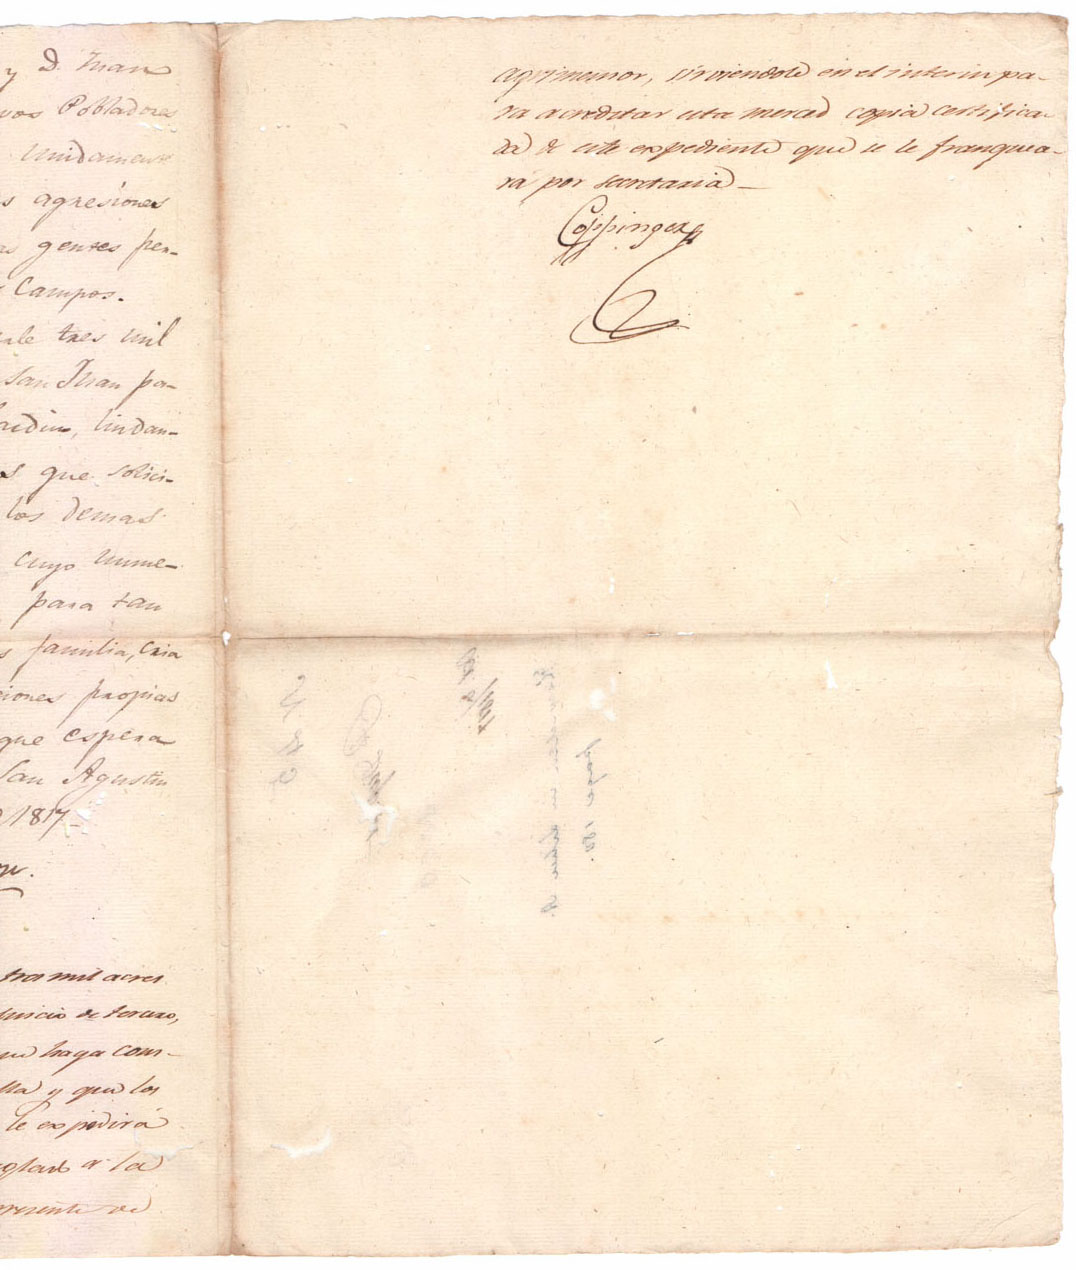 y D. Juan
vos Pobladores
Unidamente
s agresiones
as gentes per-
s Campos.
ale tres mil
San Juan pa-
ardin, lindan-
os que solici-
los demas
cuyo nume-
para tan
s familia, cria
ciones propias
que espera
San Agustin
1817
tres mil acres
juicio de tercero,
ue haga cons-
lla y que los
le expedirá
glad a la
presente de
agrimensor, sirviendole en el interin pa-
ra acreditar esta merced copia certifica-
da de este expediente que se le franquea-
rá por secretaria_
Coppinger